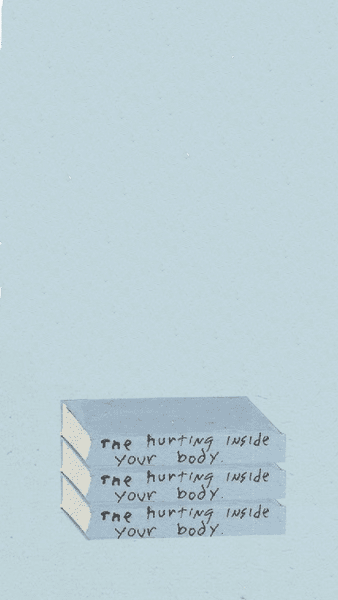 The hurting inside
your body.
The hurting inside
your body.
The hurting inside
your body.